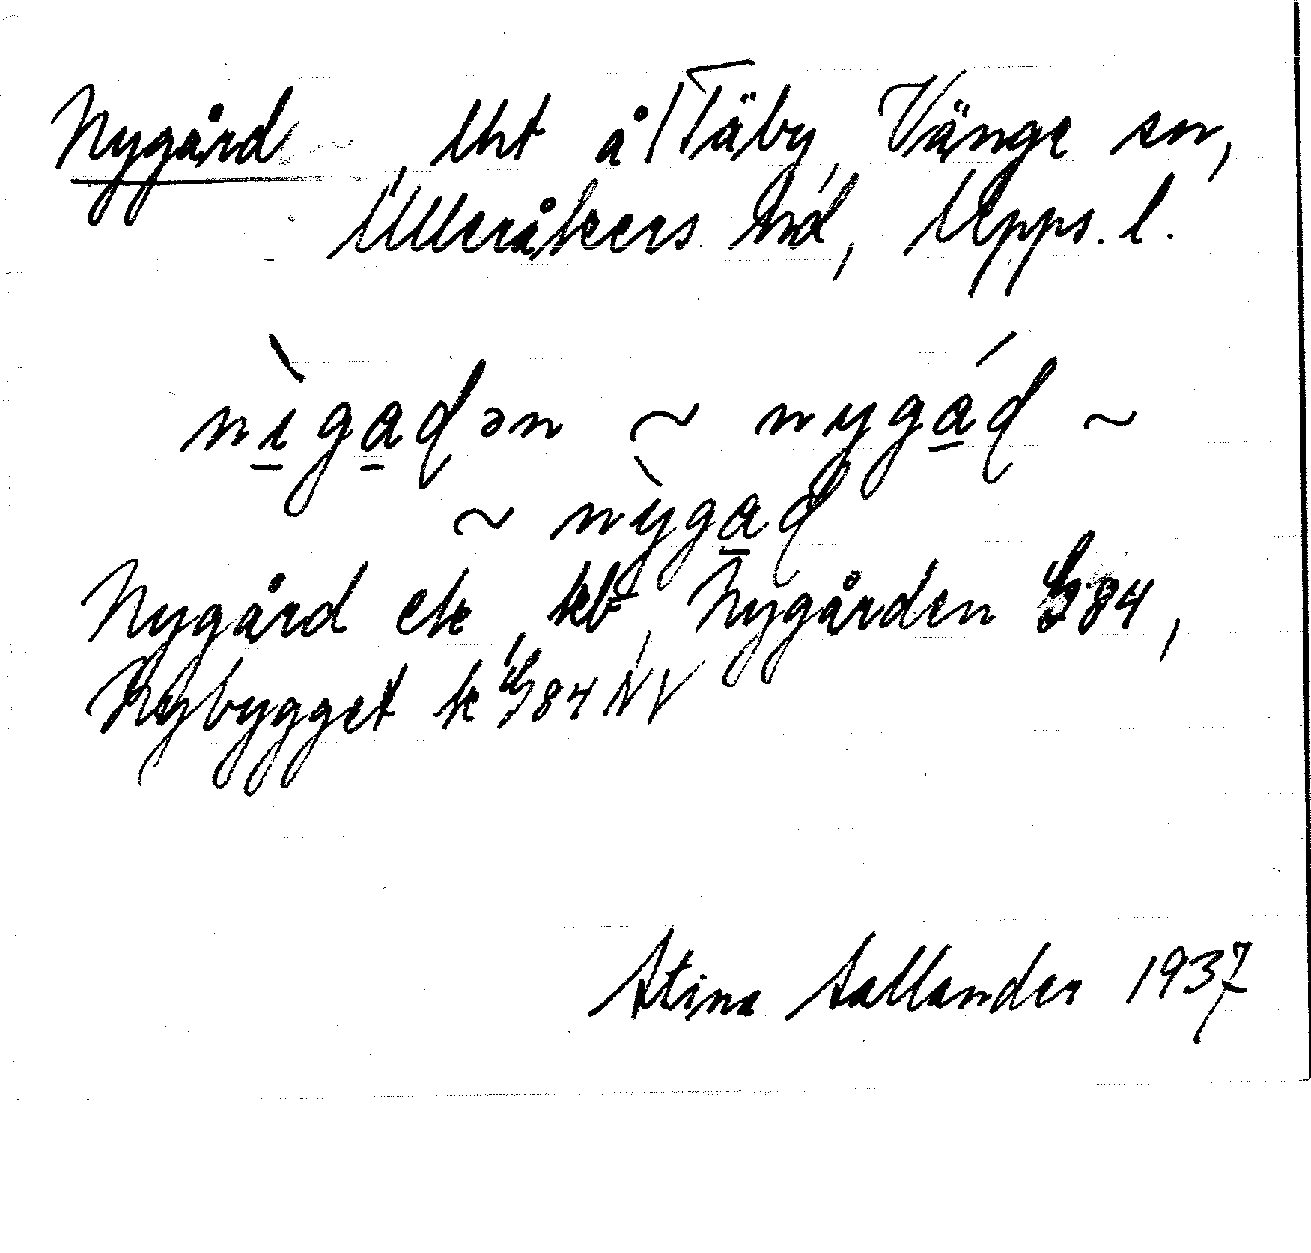 Nygård, lht å Täby, Vänge sn,
Ulleråkers hd, Upps. l.
nìgadən ~ nygád ~
~ nỳgad
Nygård ek, kb, Nygården G84,
Nybygget k G84 NV
Stina Sallander 1937